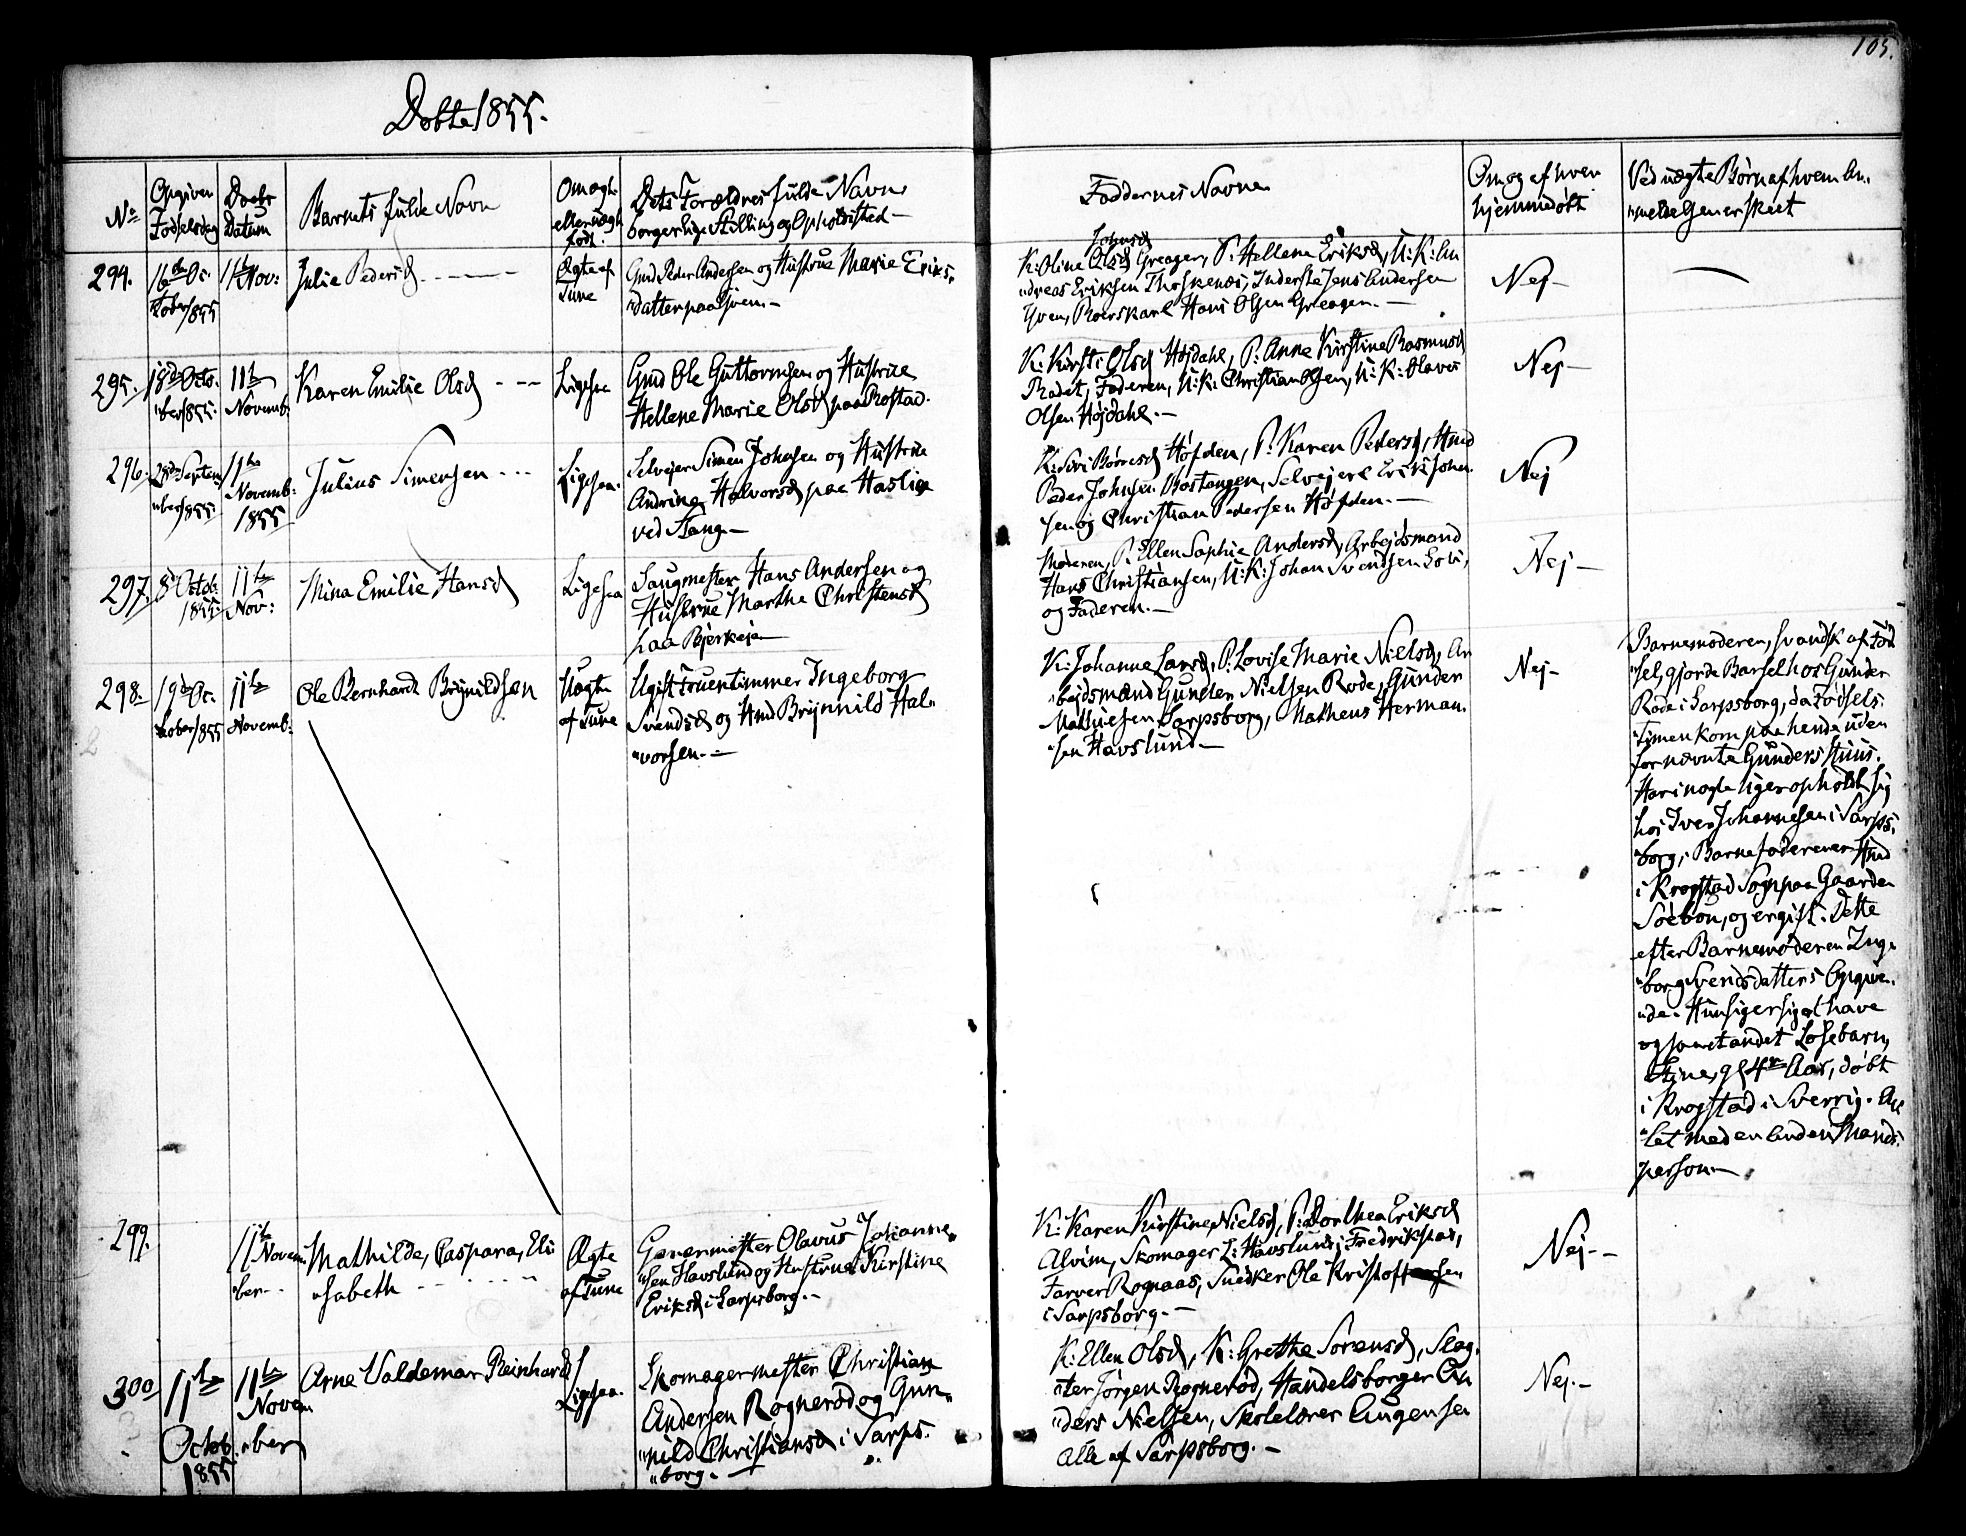 105.
Døbte 1855.
No
Opgiven
Fødselsdag
Daabs
Datum
Barnets fulde Navn
Om ægte
eller uægte
født.
Dets Forældres fulde Navne
borgerlige Stilling og Opholdsted —
Faddernes Navne
Om og af hvem
hjemmedøbt
Ved uægte Børn af hvem An-
"meldelsen er skeet
294.
16de Oc-
tober 1855
11te Nov:
Julie Pedersd
Ægte af
Tune
Gmd Peder Andersen og Hustrue Marie Eriks-
"datter paa Hven. —
Johnsd
K: Oline Olsd Greager, P: Hellene Eriksd, U: K: An
"dreas Eriksen Thoskenæs, Inderste Jens Andersen
Hven, Roerskarl Hans Olsen Greagen. —
Nej —
295.
18de Octo-
"ber 1855.
11te
Novemb:
Karen Emilie Olsd
Ligesaa
Gmd Ole Guttormsen og Hustrue
Hellene Marie Olsd paa Rostad.
K: Kirsti Olsd Højdahl, P: Anne Kirstine Rasmusd
Rødet, Faderen, U: K: Christian Olsen, U: K: Olaves
Olsen Højdahl. —
Nej —
296.
28de Septem
"ber 1855
11te
Novemb:
1855
Julius Simensen
Ligesaa.
Selvejer Simen Johnsen og Hustrue
Andrine Halvorsd paa Haslie
ved Stang. —
K: Siri Børresd Høfden, P: Karen Pedersd, Gmd
Peder Johnsen Bostangen, Selvejere Erik Johan-
sen og Christian Pedersen Høfden. —
Nej
297.
8de Octob.
1855.
11te
Nov:
Mina Emilie Hansd
Ligesaa
Saugmester Hans Andersen og
Hustrue Marthe Christensd
paa Bjerkeje
Moderen, P: Ellen Sophie Andersd, Arbejdsmand
Hans Christiansen, U: K: Johan Svendsen Sobi,
og Faderen. —
Nej —
298.
19de Oc-
tober 1855
11te
Novemb:
Ole Bernhardt Brynildsen
Uægte
af Tune
Ugift Fruentimmer Ingeborg
Svendsd og Gmd Brynnild Hal-
"vorsen. —
K: Johanne Larsd, P: Lovise Marie Nielsd, Ar
"bejdsmænd Gunder Nielsen Rode, Gunder
Mathiesen Sarpsborg, Matheus Herman-
"sen Havslund —
Nej —
Barnemoderen, svendsk af Fød
"sel, gjorde Barsel hos Gunder
Rode i Sarpsborg, da Fødsels-
Timen kom paa hende uden
for nævnte Gunders Huus.
Har i nogle Uger opholdt sig
hos Iver Johannesen i Sarps-
"borg, Barnefaderen er Gmd
i Krogstad Sogn paa Gaarden
Søebøn, og er gift. Dette
efter Barnemoderen Inge-
"borg Svendsdatters Opgive-
"de. Hun siger sig at have
og saa et andet Løsebarn,
Stine, gl 4re Aar, døbt
i Krogstad i Sverrig. Av
"let med en anden Mands-
person. —
299.
11te
Novem
"ber
Mathilde, Caspara, Eli
"sabeth
Ægte
af Tune
Garvermester Olavus Johanne-
"sen Havslund og Hustrue Kirstine
Eriksd i Sarpsborg. —
K: Karen Kirstine Nielsd, P: Dorthea Eriksd
Alvim, Skomager L: Havslund, Fredrikstad,
Farver Rognaas, Snedker Ole Kristoffersen
i Sarpsborg. —
Nej —
300
11te
Octob.
1855
11te
Novem
"ber
Arne Valdemar Reinhard
Ligesaa.
Skomagermester Christian
Andersen Rognerød og Gun-
"nild Christiansd i Sarps-
"borg. —
K: Ellen Olsd, K: Grethe Sørensd, Slag-
"ter Jørgen Rognerød, Handelsborger An
"ders Nielsen, Skolelærer Augensen
Alle af Sarpsborg. —
Nej. —